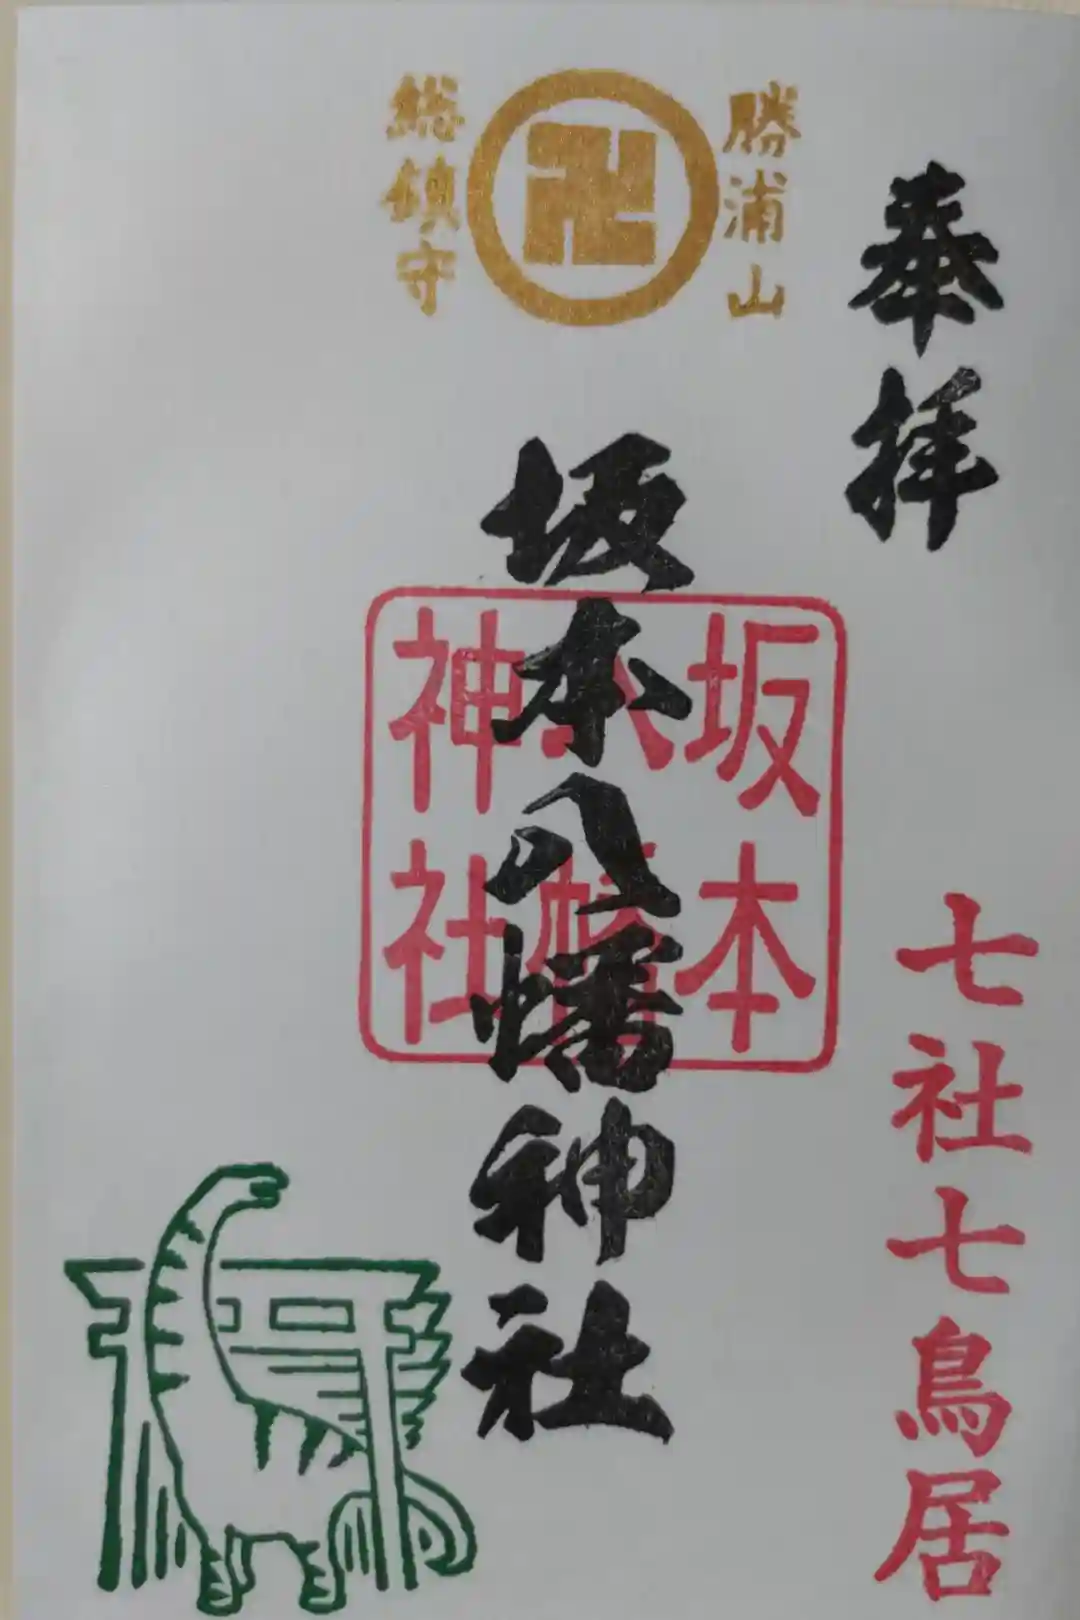 奉拝
勝浦山
卍
総鎮守
坂本八幡神社
坂本
八幡
神社
七社七鳥居